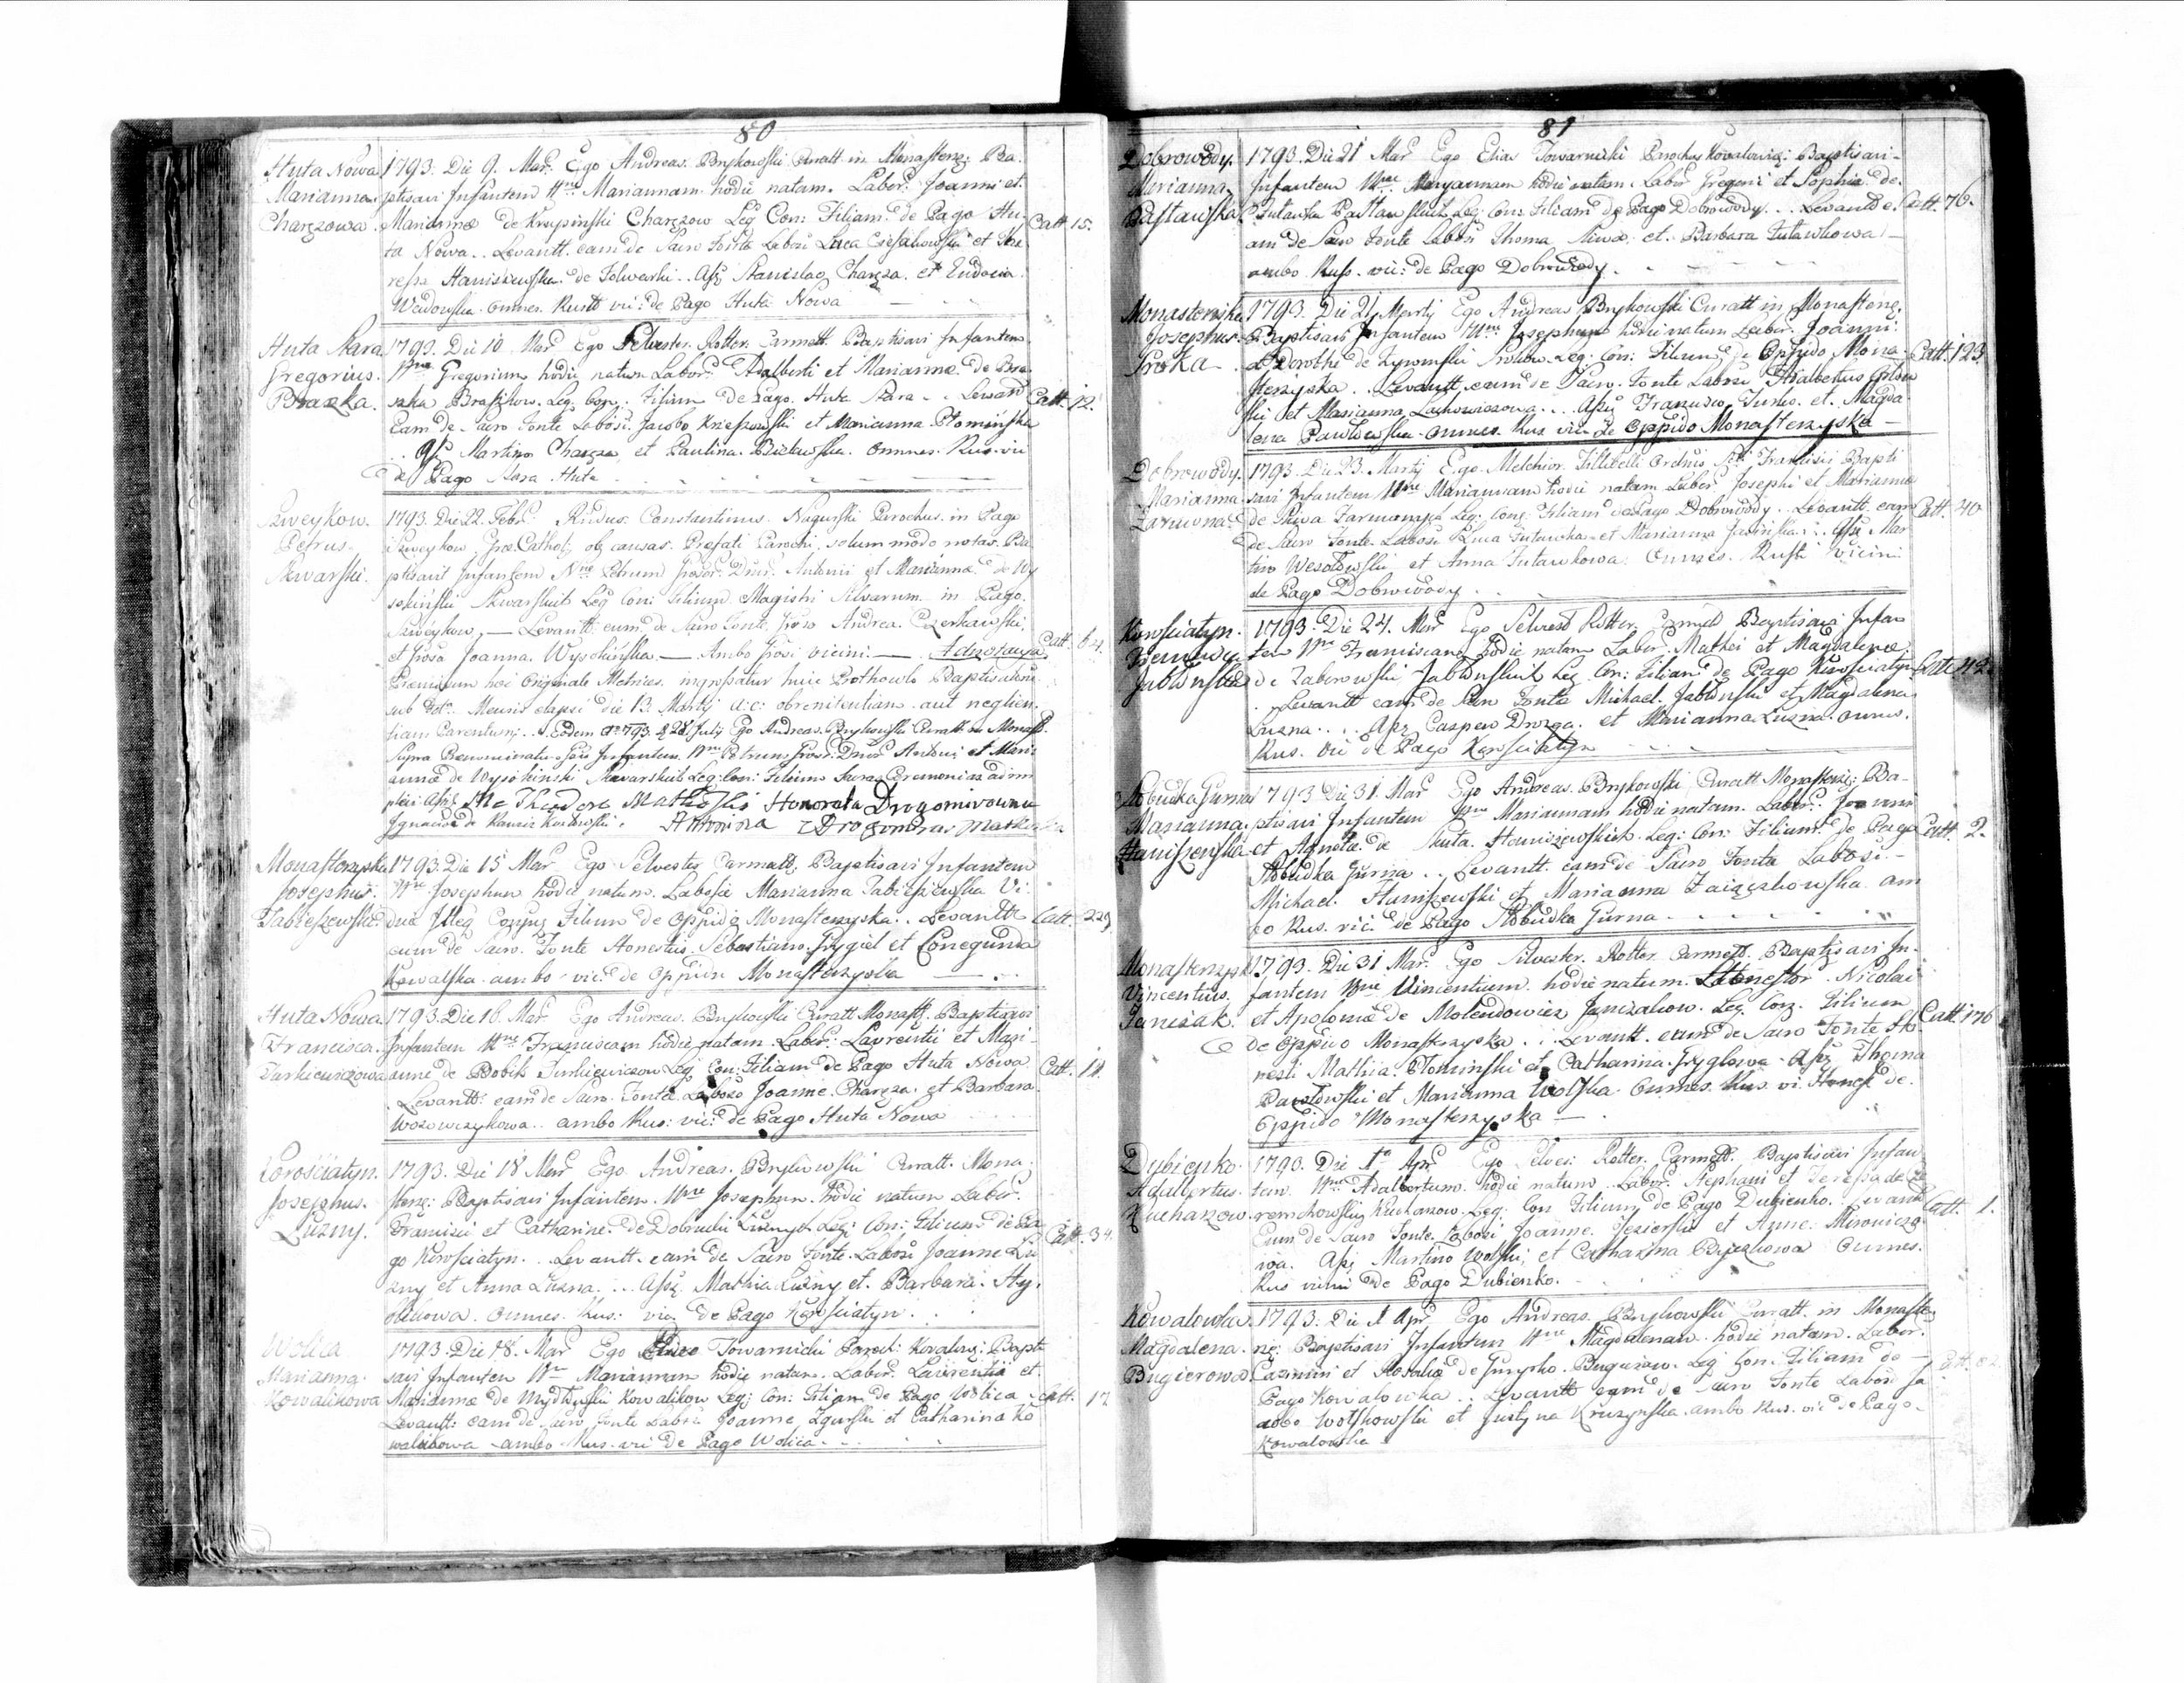 80
Huta Nowa
Marianna
Charęzowa.
1793. Die 9. Mar. Ego Andreas Brykowski Curatt in Monasterz: Ba-
ptisavi Infantem Nne Mariannam hodie natam. Labor. Joanni et
Mariannæ de Krupinski Charęzow Leg Con: Filiam de Pago Hu-
ta Nowa.. Levantt. eam de Sacro Fonte Labosi Luca et The-
resa Staniszewska de Folwarki.. Assz Stanislao Charęza. et Eudocia
omnes. Rustt vic: de Pago Huta Nowa
Catt. 15.
Huta Stara
Gregorius.
Braszka.
1793. Die 10 Mar Ego Selvester. Rotter. Carmett. Baptisavi Infantem
Nne Gregorium hodie natum Labor. Adalberti et Mariannæ de Bra-
szka Braszkow. Leg Con. Filium de Pago. Huta Stara.. Levand
Eam de Sacro Fonte Labosi. Jacobo et Marianna Płominska
.. Assz Martino Charęza et Paulina. Bielawska. omnes. Rus. vic
de Pago Stara Huta
Catt. 12.
Szweykow.
Petrus.
Skwarski.
1793. Die 22. Febr. Rndus. Constantinus. Nagurski Parochus. in Pago
Szweykow, Græ Cathol, ob causas. Prefati Parochi, solum modo notas. Ba-
ptisavit Infantem Nne Petrum Gnosor. Dnor. Antonii et Mariannæ de Wy-
sokiński Skwarskich Leg Con: Filium Magistri Silvarum in Pago.
Szweykow, — Levantt. eum de Sacro Fonte Gnoso Andrea. Czerkawski,
et Gnosa Joanna. Wysokińska — Ambo Gnosi vicini — Adnotaya
Præmium hoc Originale Metrices. ingrossatur huic Prothowlo Baptisatorum
sub Dat. Mensis elapsi die 13 Martij a: c: ob renitentiam aut neglien-
tiam Parentum.. Eodem Ao 793. d. 28 July Ego Andreas. Brykowski Curatt in Monast.
Supra Præmemorato Infantem. Nne Petrum Gnosor. Dnor Antonii et Mari-
annæ de Wysokinski Skwarskich Leg: Con: Filium Sacras Ceremonias adim-
plevi Assz Theodore Matkoski Honorata Drogomirowna
Ignacio de Antonina Drogomira Matkoska
Catt. 64.
Monasterzyska
Josephus.
1793. Die 15 Mar Ego Selvester Carmett. Baptisavi Infantem
Nne Josephum hodie natum. Labosæ Marianna Vi-
dua Illeg Conjug Filium de Oppido Monasterzyska.. Levantt
eum de Sacro. Fonte Honestus. Sebastiano. Grygiel et Conegunda
Kowalska. ambo. vic. de Oppido Monasterzyska
Catt. 229
Huta Nowa
Francisca.
Turkiewiczowa
1793. Die 16. Mar Ego Andreas. Brykowski Curatt Monast. Baptisavi
Infantem Nne Franciscam hodie natam. Labor. Laurentii et Mari-
annæ de Bobik Turkiewiczow Leg Con: Filiam de Pago Huta Nowa
Levantt. eam de Sacro. Fonte. Laboso Joanne. Charęza. et Barbara.
Wozowczykowa.. ambo Rus: vic: de Pago Huta Nowa
Catt. 14.
Korosciatyn.
Josephus.
Luzny.
1793. Die 18 Mar Ego Andreas. Brykowski Curatt. Mona-
sterz: Baptisavi Infantem. Nne Josephum. hodie natum Labor.
Francisci et Catharinæ de Dobrucki Luznych Leg: Con: Filium de Pa-
go Korosciatyn... Levantt. eam de Sacro Fonte. Labosi Joanne Lu-
zny et Anna Luzna... Assz Mathia Luzny et. Barbara. Hry-
omnes. Rus: vic. de Pago Korosciatyn..
Catt. 34.
Wolica
Marianna.
Kowalikowa
1793. Die 18. Mar Ego Elias Towarnicki Paroch: Kovalow: Bapti-
savi Infantem Nne Mariannam hodie natam. Labor. Laurentii et
Mariannæ de Kowalikow Leg: Con: Filiam de Pago Wolica
Levantt: eam de Sacro Fonte Labosi Joanne Zgurski et Catharina Ko-
walikowa. ambo. Rus. vic de Pago Wolica
Catt. 17
81
Dobrowody.
Marianna.
Pastawska.
1793. Die 21 Mar Ego Elias Towarnicki Parochus Kovalowie: Baptisavi
Infantem Nne Maryannam hodie natam. Labor Gregorii et Sophia de
Leg. Con: Filiam de Pago Dobrowody... Levantt e-
am de Sacro Fonte Labosi Thoma et. Barbara Tutawkowa
ambo. Rus. vic: de Pago Dobrowody.
Catt. 76.
Monasterzyska
Josephus.
Proka
1793. Die 21 Martij Ego Andreas Brykowski Curatt in Monasterz.
Baptisavi Infantem Nne Josephum hodie natum Labor. Joanni.
et Dorothe de Leg. Con: Filium de Oppido Mona-
sterzyska.. Levantt. eum de Sacro. Fonte Labosi Adalbertus
et Marianna Lachowiczowa... Assz Francisco Junio. et. Magda-
lena Pawlowska omnes. Rus vic de Oppido Monasterzyska
Catt. 123.
Dobrowody.
Marianna.
1793. Die 23. Martij Ego. Melchior. Ordinis Sti Francisci Bapti-
savi Infantem Nne Mariannam hodie natam Labor Josephi et Marianne
de Leg. Conj: Filiam de Pago Dobrowody.. Levantt eam
de Sacro Fonte. Labosi Luca Tutawka et Marianna.. Assz Mar-
tino Wesołowski et Anna Tutawkowa. Omnes. Rusti vicini
de Pago Dobrowody.
Catt. 40
Korosciatyn.
Jablonska
1793. Die 24. Mar Ego Selvest Rotter. Carmett Baptisavi Infan-
tem Nne Franciscam hodie natam Labor. Mathei et Magdalenæ
de Zaborowski Jablonskich Leg Con: Filiam de Pago Korosciatyn
.. Levantt eam de Sacro Fonte Michael. Jablonski et Magdalena
Luzna... Assz Casper Drozga. et Marianna Luzna. omnes.
Rus. vic de Pago Korosciatyn
Catt. 42
Słobudka Gurna
Marianna.
Staniszewska
1793 Die 31. Mar Ego Andreas. Brykowski Curatt Monasterz: Ba-
ptisavi Infantem Nne Mariannam hodie natam. Labor. Joanni
et Agnetæ. de Huta. Staniszewskich. Leg: Con: Filiam. de Pago
Słobudka Gurna.. Levantt eam de Sacro Fonte Labosi.
Michael. Staniszewski et Marianna am-
bo Rus. vic. de Pago Słobudka Gurna
Catt. 2.
Monasterzysk
Vincentius.
Janczak.
1793. Die 31 Mar. Ego Silvester. Rotter Carmett. Baptisavi In-
fantem Nne Vincentium. hodie natum. Honestor. Nicolai
et Apoloniæ de Molendowicz Janczakow. Leg. Con. Filium
de Oppido Monasterzyska... Levantt. eum de Sacro Fonte Ho-
nesti Mathia. Płominski et Catharina. Gryglowa. Assz Thoma
Pawłowski et Marianna Wolska. Omnes. Rus. vi. Honest de.
Oppido Monasterzyska
Catt. 176
Dubienko.
Adalbertus.
Kucharzow.
1793. Die 1a Apr. Ego Selves: Rotter. Carmett. Baptisavi Infan-
tem. Nne Adalbertum. hodie natum. Labor. Stephani et Teressa de
Kucharzow. Leg: Con Filium de Pago Dubienko. Levantt
Eum de Sacro Fonte. Labosi Joanne. Jezierski et Anne.
Assz Martino Wolski, et Catharina Omnes.
Rus vicini de Pago Dubienko.
Catt. 1.
Kowalowka.
Magdalena.
Bugierowa.
1793. Die 1 Apr. Ego Andreas. Brykowski Curatt. in Monaste-
rz: Baptisavi Infantem Nne Magdalenam. hodie natam. Labor.
Casimiri et Rosaliæ de Bugierow. Leg Con: Filiam de
Pago Kowalowka.. Levantt eam de Sacro Fonte Labosi Ja-
cobo Wolskowski et Justyna Kruszynska. ambo Rus. vic de Pago
Kowalowka